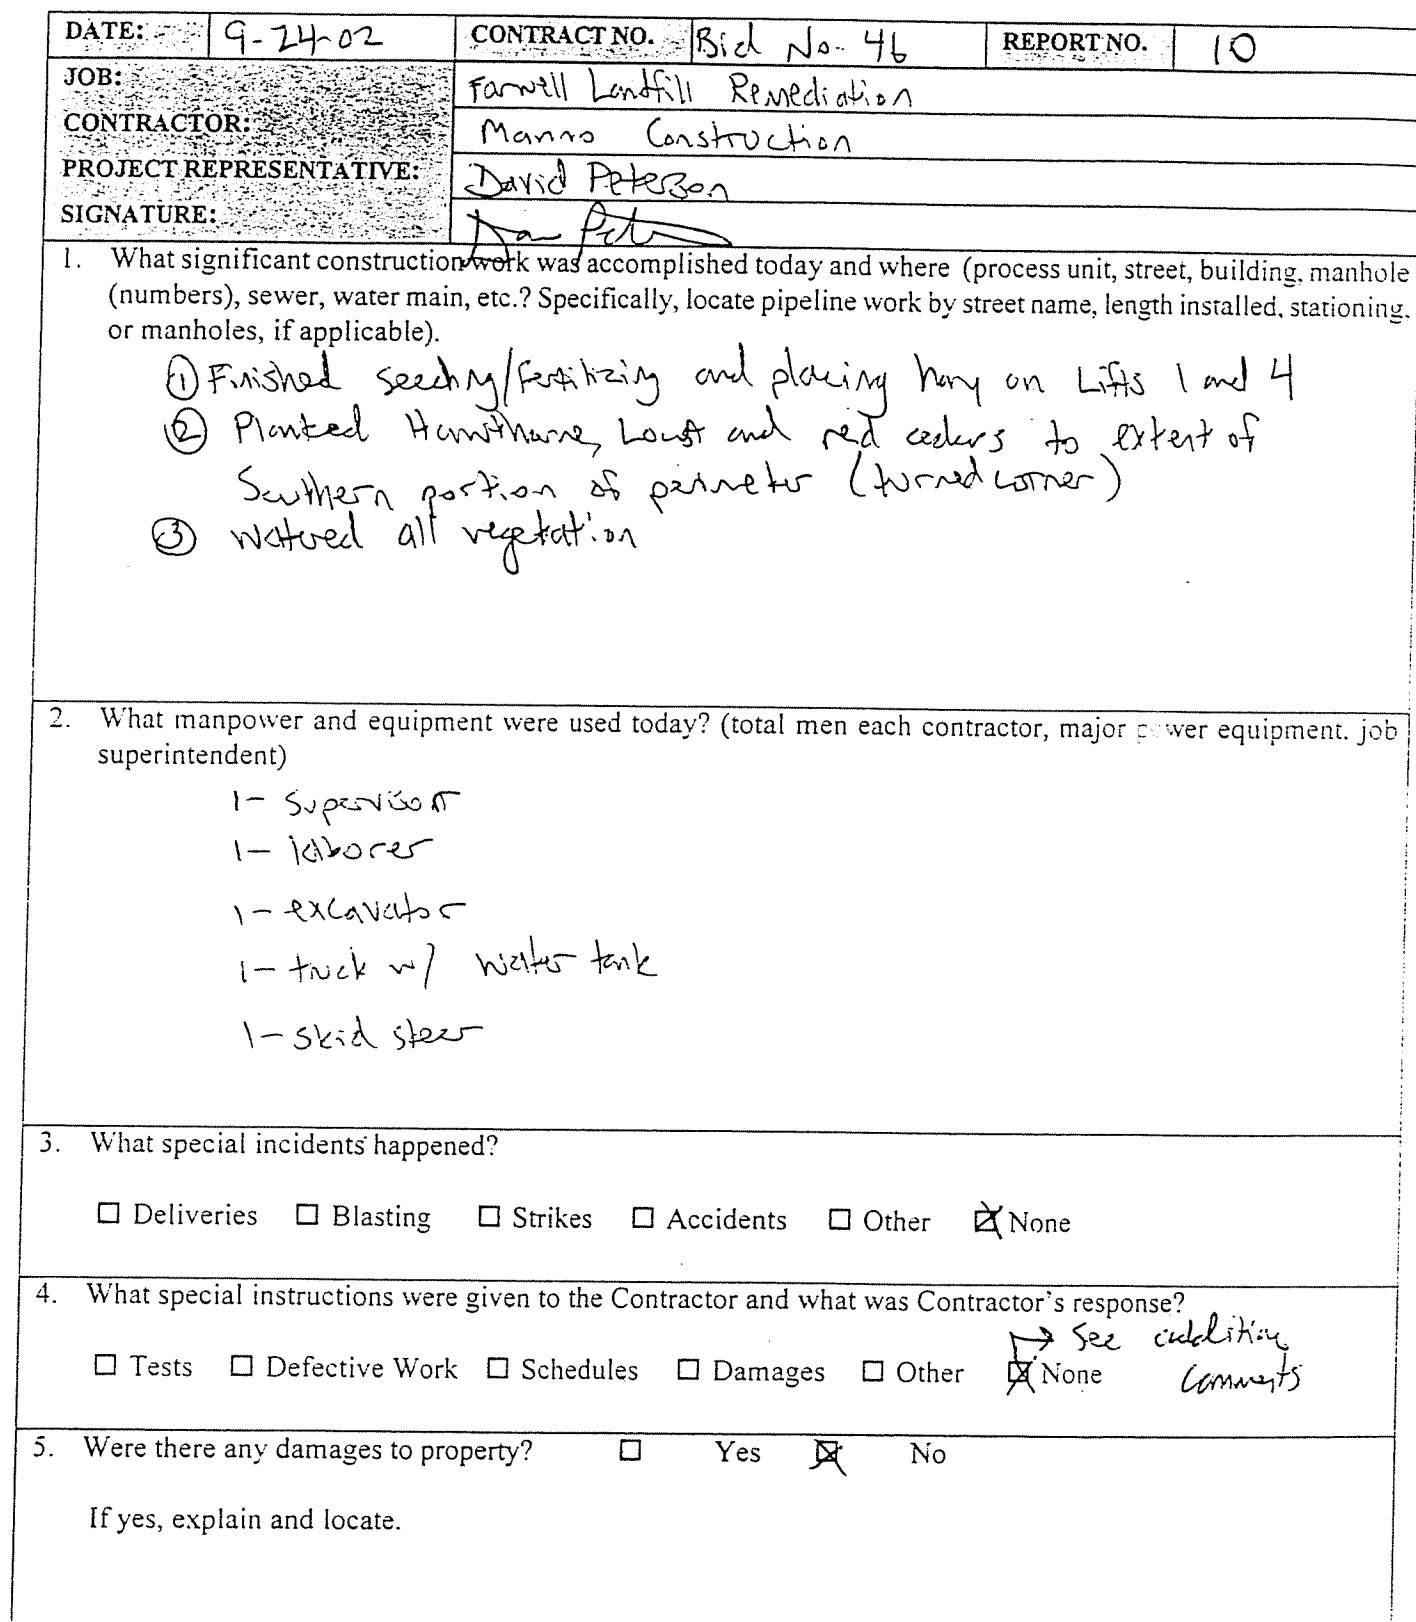 DATE: 9-24-02 CONTRACT NO. Bid No. 46 REPORT NO. 10
JOB: Farwell Landfill Remediation
CONTRACTOR: Manno Construction
PROJECT REPRESENTATIVE: David Peterson
SIGNATURE:
1. What significant construction work was accomplished today and where (process unit, street, building, manhole
(numbers), sewer, water main, etc.? Specifically, locate pipeline work by street name, length installed, stationing,
or manholes, if applicable).
① Finished seeding/fertilizing and placing hay on Lifts 1 and 4
② Planted Hawthorne, Locust and red cedars to extent of
Southern portion of perimeter (turned corner)
③ Watered all vegetation
2. What manpower and equipment were used today? (total men each contractor, major power equipment, job
superintendent)
1- Supervisor
1- laborer
1- excavator
1- truck w/ water tank
1- skid steer
3. What special incidents happened?
☐ Deliveries ☐ Blasting ☐ Strikes ☐ Accidents ☐ Other ☒ None
4. What special instructions were given to the Contractor and what was Contractor's response?
→ See addition
☐ Tests ☐ Defective Work ☐ Schedules ☐ Damages ☐ Other ☒ None Comments
5. Were there any damages to property? ☐ Yes ☒ No
If yes, explain and locate.